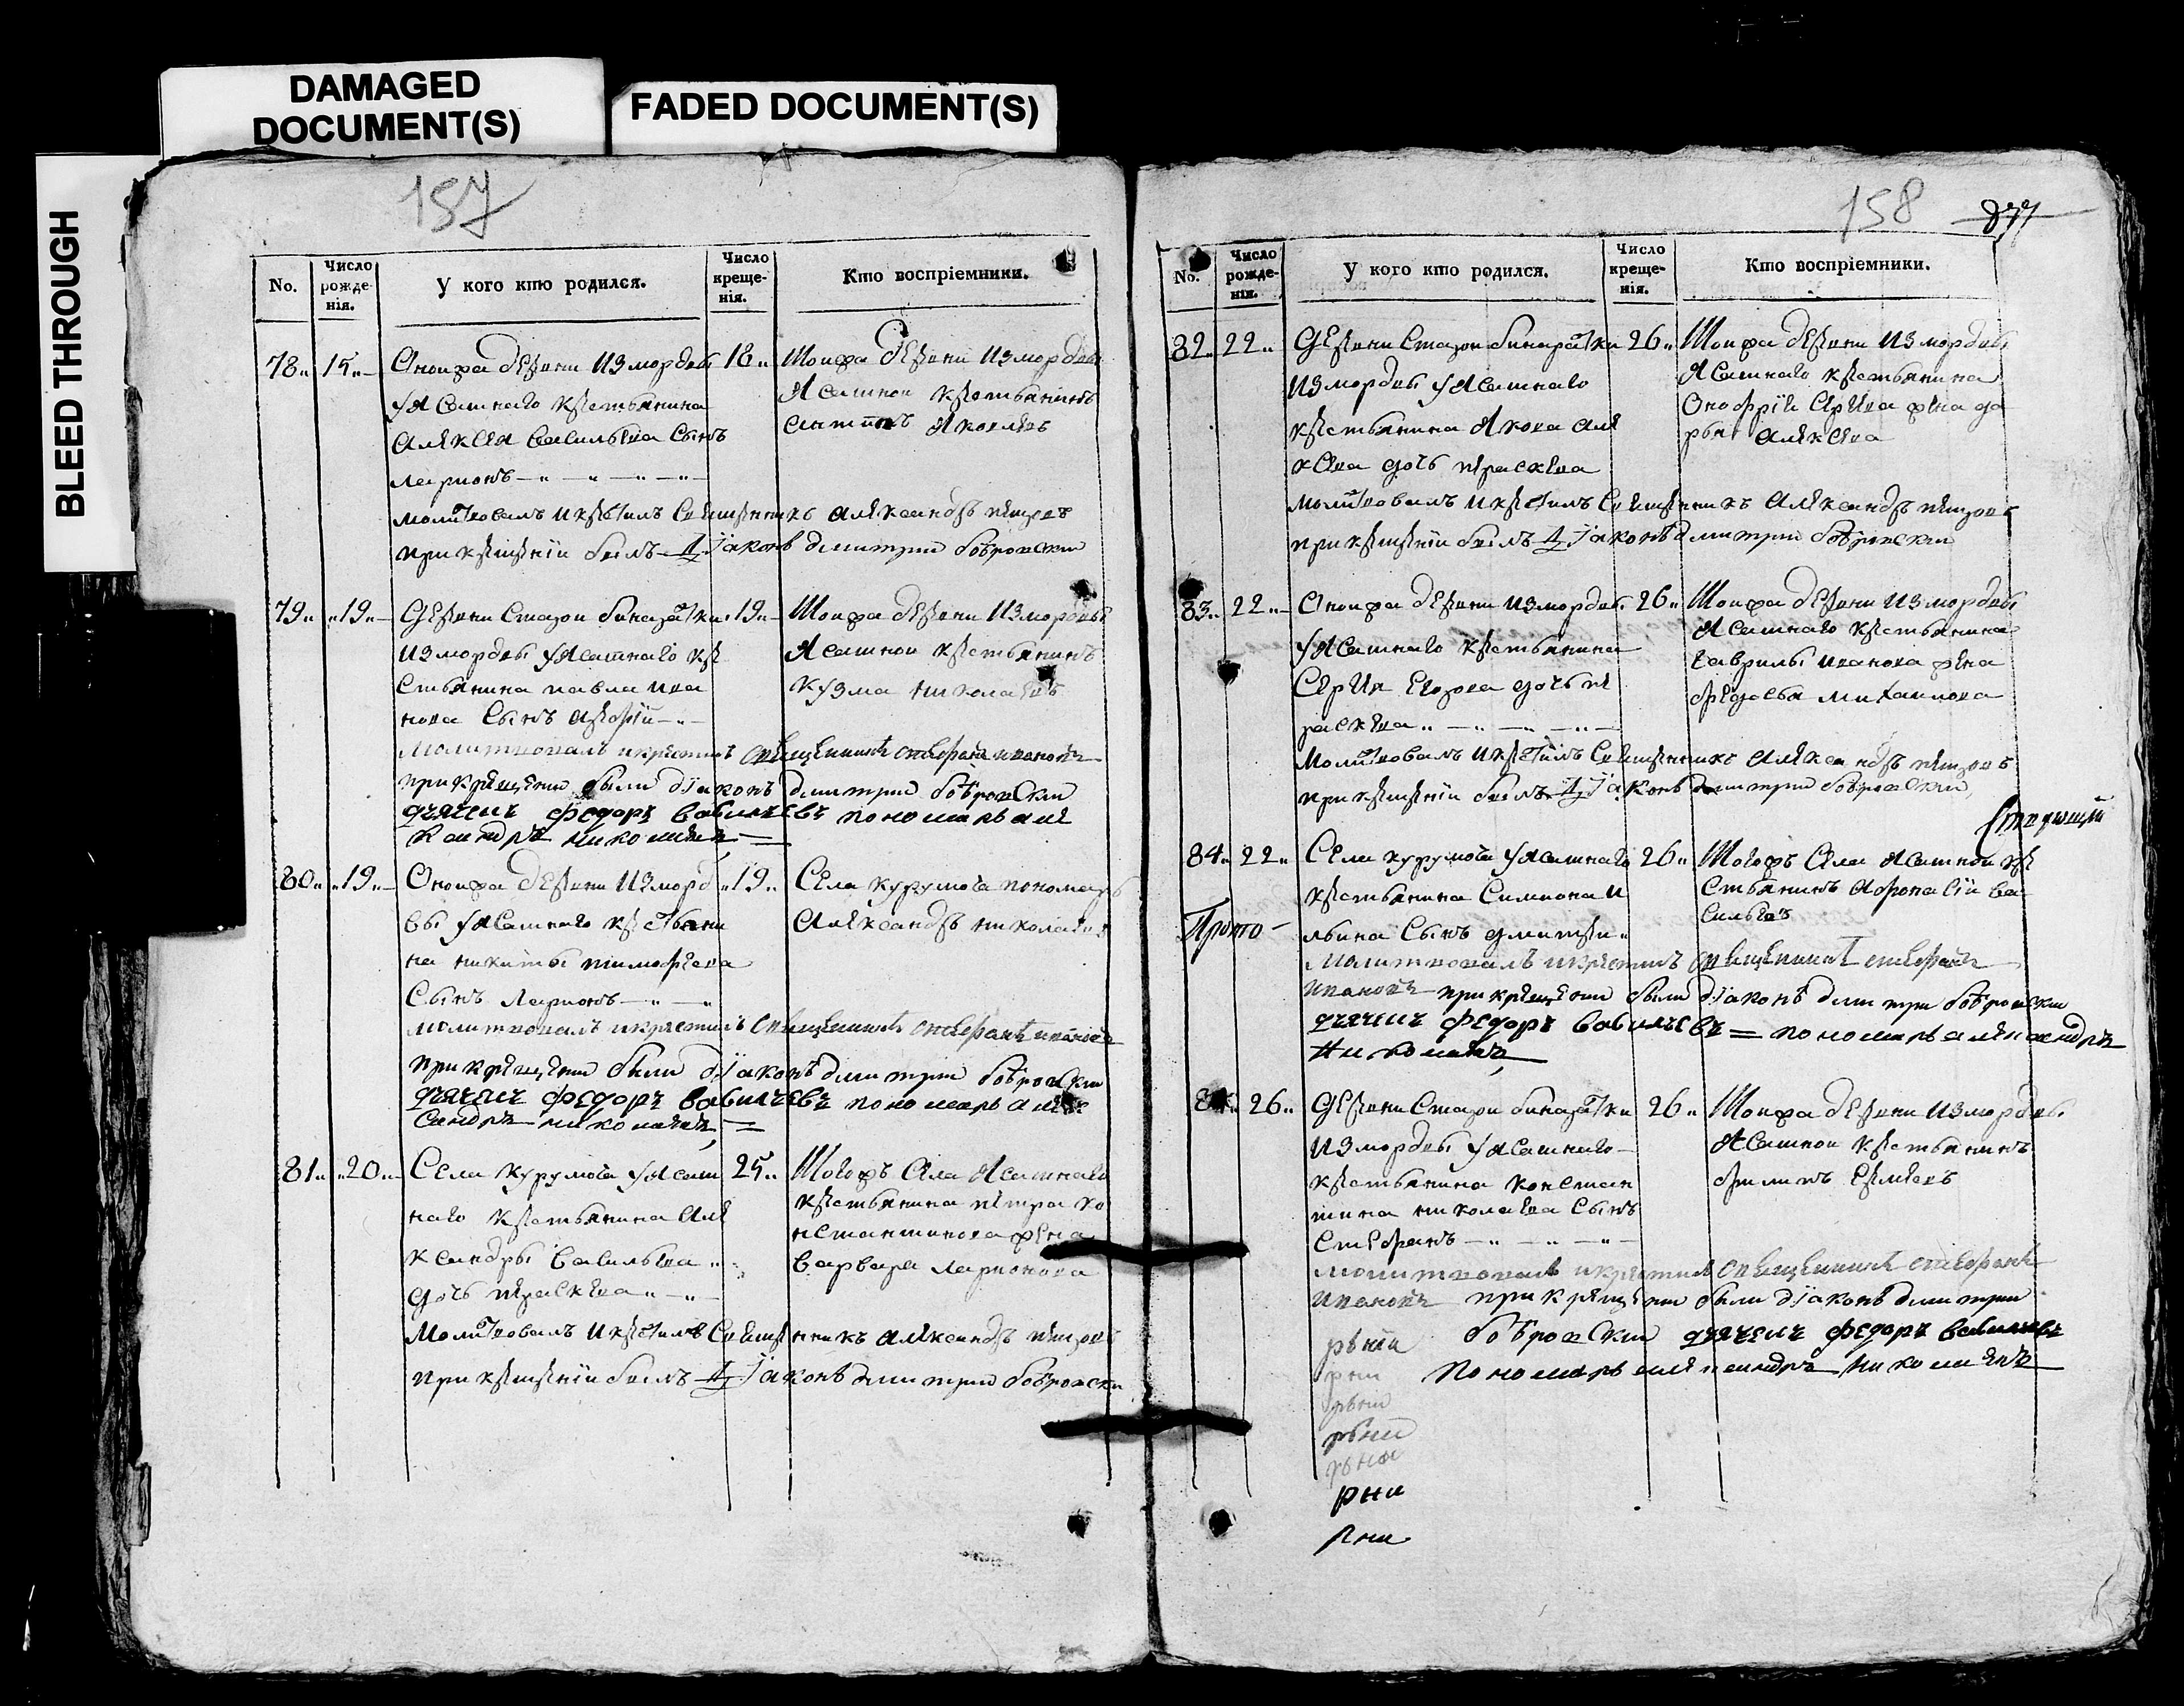 DAMAGED
DOCUMENT(S)
FADED DOCUMENT(S)
BLEED THROUGH
157
No.
Число рожде-нія.
У кого кто родился.
Число креще-нія.
Кто воспріемники.
78 15
Оноиже деревни Измордвы
уясашнаго крестьянина
Алексея Васильева сынъ
Ларионъ
18
Тоиже деревни Измордвы
Ясашнои крестьянинъ
Антипъ Яковлевъ
Молитвовалъ и крестилъ Священникъ Александръ Петровъ
при крещеніи былъ Діяконъ Димитрии Бобровски
79 19
Деревни Старои Бинаратки
Измордвы уясашнаго кре
стьянина Павла Ива
нова сынъ
19
Тоиже деревни Измордвы
Ясашнои крестьянинъ
Кузма Николаевъ
молитвовалъ и крестилъ священникъ Стефанъ Ивановъ
при крещени были діяконъ Димитрии Бобровски
дьячекъ Федоръ Васильевъ пономарь Але
ксандръ Николаевъ
80 19
Оноиже деревни Изморд
вы уясашнаго крестьяни
на Никиты Тимофеева
Сынъ Ларионъ
19
Села Курумоча пономарь
Александръ Николаевъ
молитвовалъ и крестилъ священникъ Стефанъ Ивановъ
при крещени были діяконъ Димитрии Бобровски
дьячекъ Федоръ Васильевъ пономарь Алек
сандръ Николаевъ
81 20
Села Курумоча уясаш
наго крестьянина Але
ксандры Васильева
дочь Праскева
25
Тогожъ села Ясашнаго
крестьянина Петра Ко
нстантинова жена
Варвара Ларионова
Молитвовалъ и крестилъ Священникъ Александръ Петровъ
при крещеніи былъ Діяконъ Димитрии Бобровски
158 877
No.
Число рожде-нія.
У кого кто родился.
Число креще-нія.
Кто воспріемники.
82 22
Деревни Старои Бинаратки
Измордвы уясашнаго
крестьянина Якова Але
ксева дочь Праскева
26
Тоиже деревни Измордвы
Ясашнаго крестьянина
Онофріи Сергиева жена да
рья Алексева
Молитвовалъ и крестилъ Священникъ Александръ Петровъ
при крещеніи былъ Діяконъ Димитрии Бобровски
83 22
Оноиже деревни Измордвы
уясашнаго крестьянина
Сергия Егорова дочь П
раскева
26
Тоиже деревни Измордвы
Ясашнаго крестьянина
Гаврилы Иванова жена
Федосья Михаилова
Молитвовалъ и крестилъ Священникъ Александръ Петровъ
при крещеніи былъ Діяконъ Димитрии Бобровски
84 22
Села Курумоча уясашнаго
крестьянина Симиона И
льина сынъ Дмитреи
26
Тогожъ села Ясашнои кре
стьянинъ Афонасіи Ва
сильевъ
Прото
молитвовалъ и крестилъ священникъ Стефанъ
Ивановъ при крещени были діяконъ Димитри Бобровски
дьячекъ Федоръ Васильевъ пономарь Александръ
Николаевъ
26
Деревни Старои Бинаратки
Измордвы уясашнаго
крестьянина Констан
тина Николаева сынъ
Стефанъ
26
Тоиже деревни Измордвы
Ясашнои крестьянинъ
Филипъ Еремеевъ
молитвовалъ и крестилъ священникъ Стефанъ
Ивановъ при крещени были діяконъ Димитрии
Бобровски дьячекъ Федоръ Васильевъ
пономарь Александръ Николаевъ
рни
рни